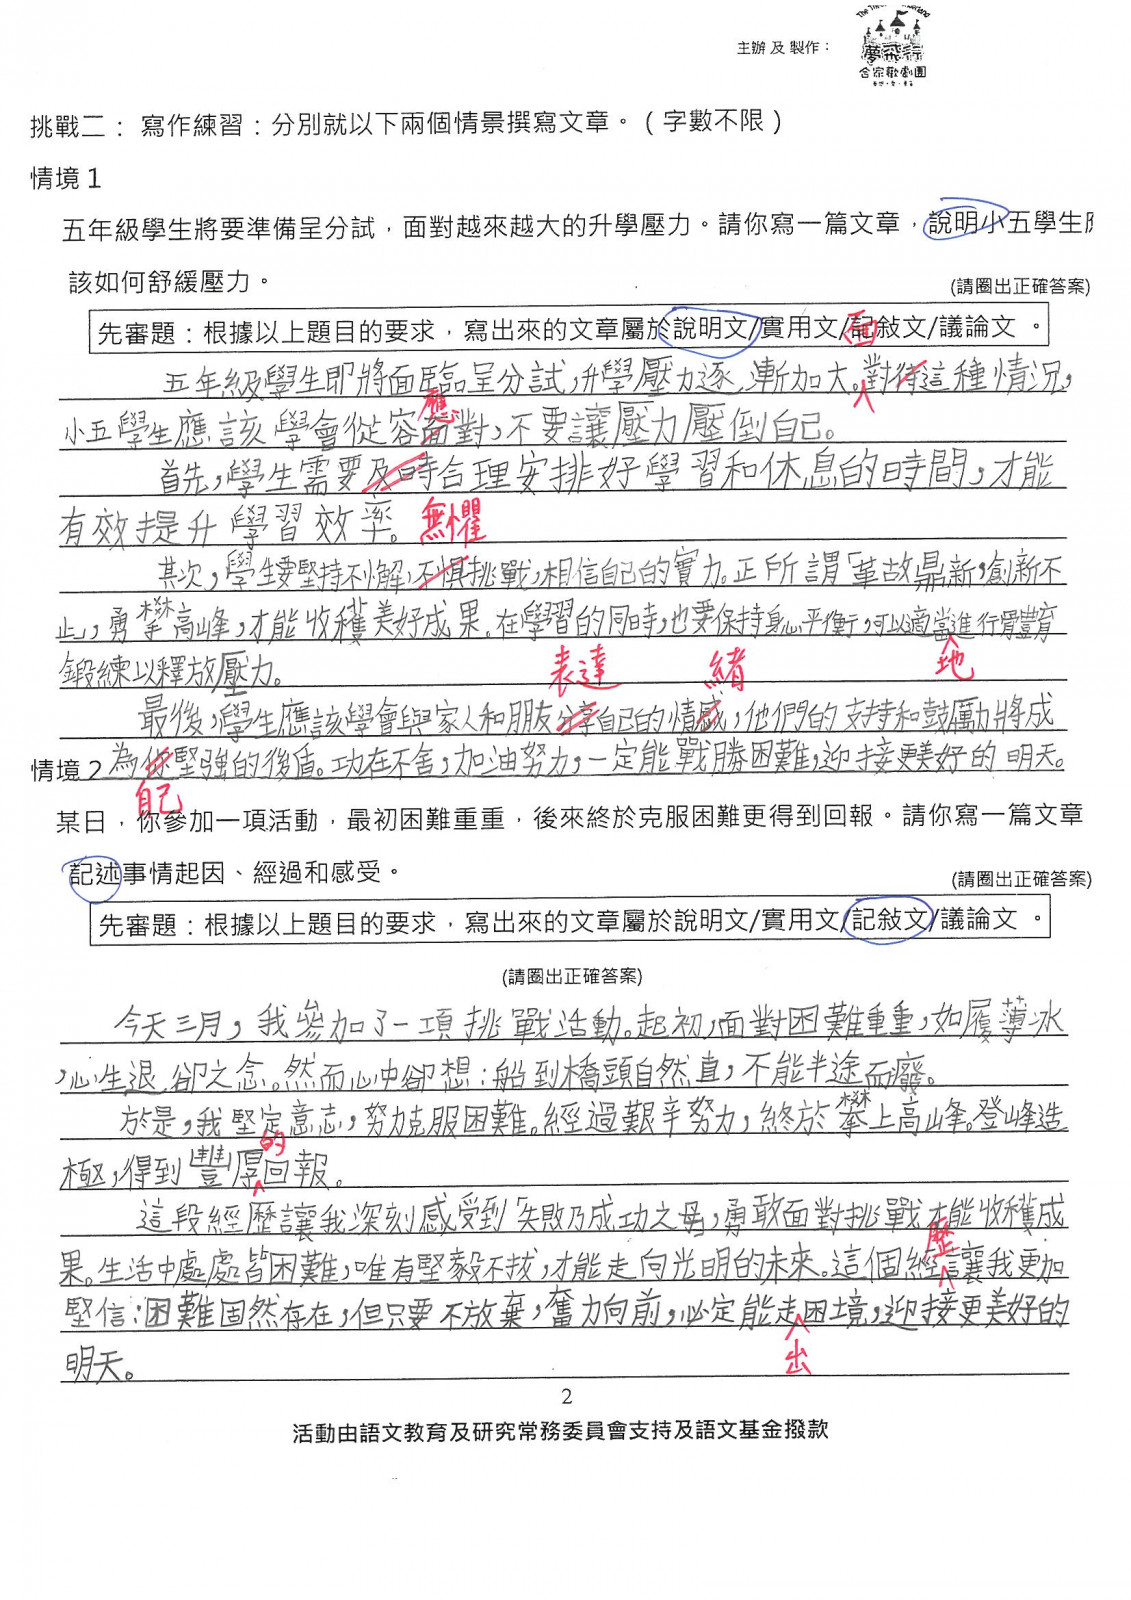 主辦 及 製作：
夢飛行
合家歡劇團
挑戰二： 寫作練習：分別就以下兩個情景撰寫文章。（字數不限）
情境 1
五年級學生將要準備呈分試，面對越來越大的升學壓力。請你寫一篇文章，說明小五學生
該如何舒緩壓力。
(請圈出正確答案)
先審題：根據以上題目的要求，寫出來的文章屬於說明文/實用文/記敍文/議論文 。
面
五年級學生即將面臨呈分試，升學壓力逐漸加大。對待這種情況，
應
小五學生應該學會從容面對，不要讓壓力壓倒自己。
首先，學生需要及時合理安排好學習和休息的時間，才能
有效提升學習效率。
無懼
其次，學生要堅持不懈，不懼挑戰，相信自己的實力。正所謂「革故鼎新，創新不
止」，勇攀高峰，才能收穫美好成果。在學習的同時，也要保持身心平衡，可以適當進行體育
地
鍛練以釋放壓力。
表達 緒
最後，學生應該學會與家人和朋友分享自己的情感，他們的支持和鼓勵將成
情境 2
為你堅強的後盾。功在不舍，加油努力，一定能戰勝困難，迎接更美好的明天。
自己
某日，你參加一項活動，最初困難重重，後來終於克服困難更得到回報。請你寫一篇文章
記述事情起因、經過和感受。
(請圈出正確答案)
先審題：根據以上題目的要求，寫出來的文章屬於說明文/實用文/記敍文/議論文 。
(請圈出正確答案)
今天三月，我參加了一項挑戰活動。起初，面對困難重重，如履薄冰
，心生退卻之念。然而心中卻想：船到橋頭自然直，不能半途而廢。
於是，我堅定意志，努力克服困難。經過艱辛努力，終於攀上高峰。登峰造
的
極，得到豐厚回報。
這段經歷讓我深刻感受到「失敗乃成功之母」，勇敢面對挑戰才能收穫成
歷
果。生活中處處皆困難，唯有堅毅不拔，才能走向光明的未來。這個經讓我更加
堅信：困難固然存在，但只要不放棄，奮力向前，必定能走困境，迎接更美好的
出
明天。
2
活動由語文教育及研究常務委員會支持及語文基金撥款